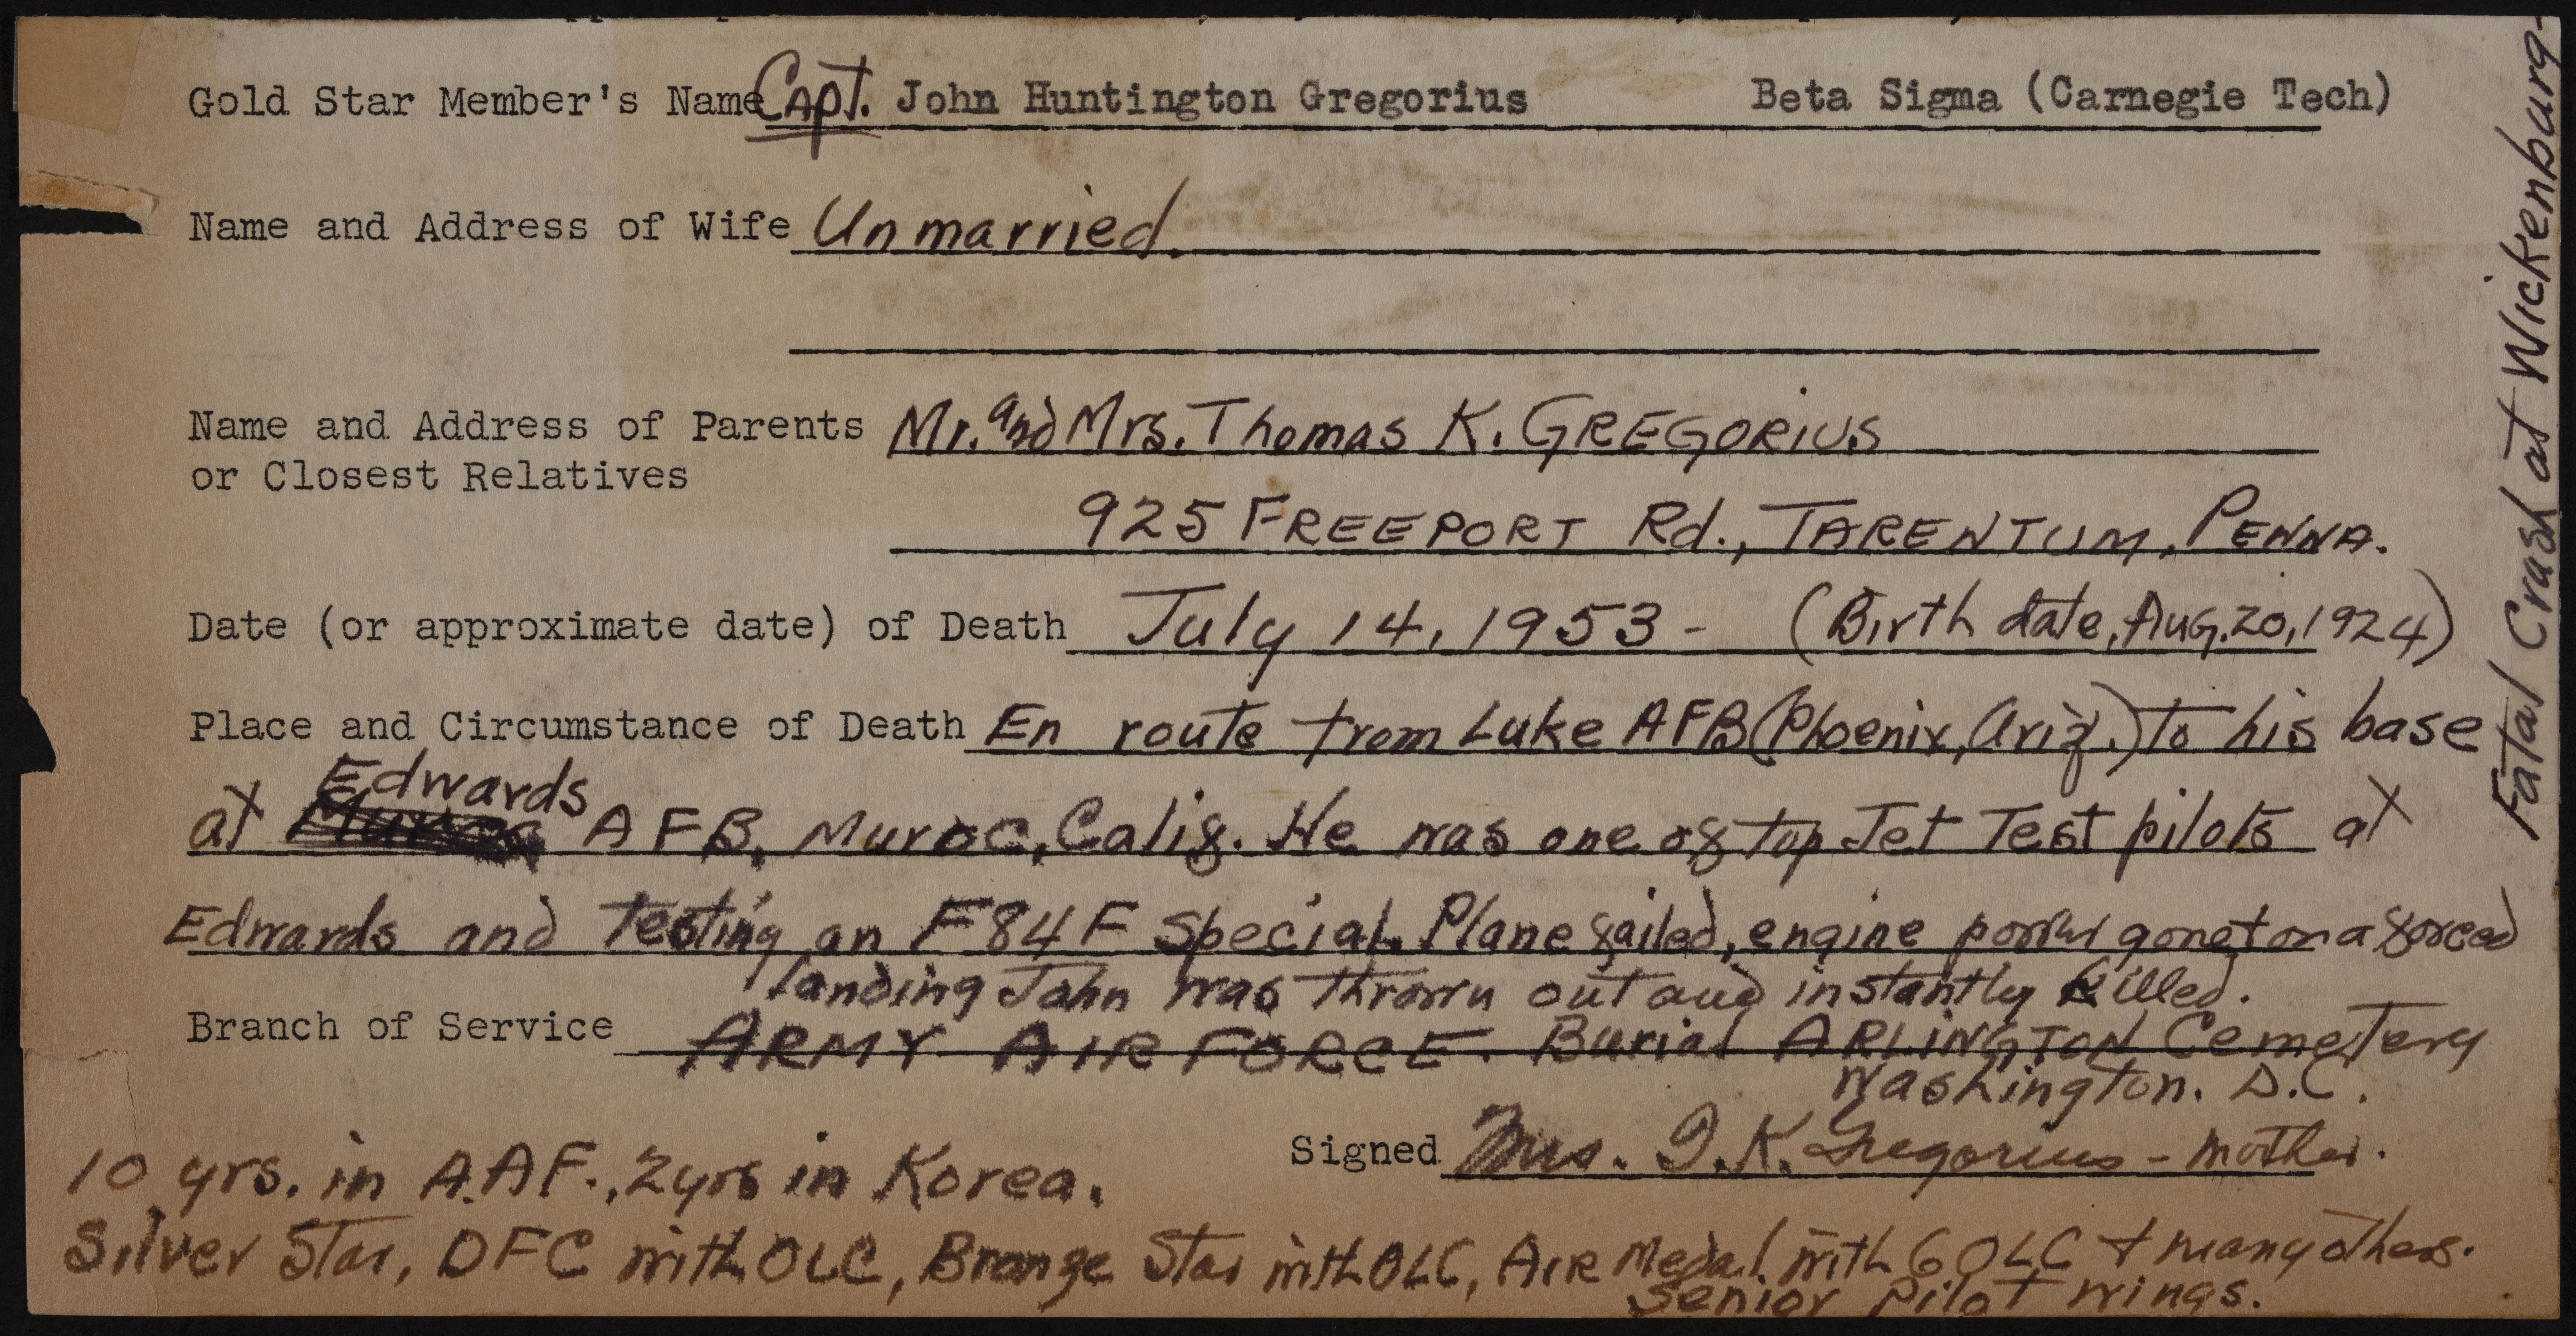 Gold Star Member's Name Capt. John Huntington Gregorius Beta Sigma (Carnegie Tech)
Name and Address of Wife Unmarried.
Name and Address of Parents Mr. and Mrs. Thomas K. GREGORIUS
or Closest Relatives
925 FREEPORT Rd., TARENTUM, PENNA.
Date (or approximate date) of Death July 14, 1953 - (Birth date, Aug. 20, 1924)
Place and Circumstance of Death En route from Luke AFB (Phoenix, Ariz.) to his base
at Edwards AFB, Muroc, Calif. He was one of top Jet Test pilots at
Edwards and Testing an F84F Special. Plane failed, engine power gone + on a forced
landing John was thrown out and instantly killed.
Branch of Service ARMY AIR FORCE. Burial ARLINGTON Cemetery
Washington. D.C.
Signed Mrs. T. K. Gregorius - mother.
10 yrs. in A.AF., 2 yrs in Korea.
Silver Star, DFC with OLC, Bronze Star with OLC, AIR Medal with 6 OLC + many others.
Senior Pilot wings.
Fatal Crash at Wickenburg-